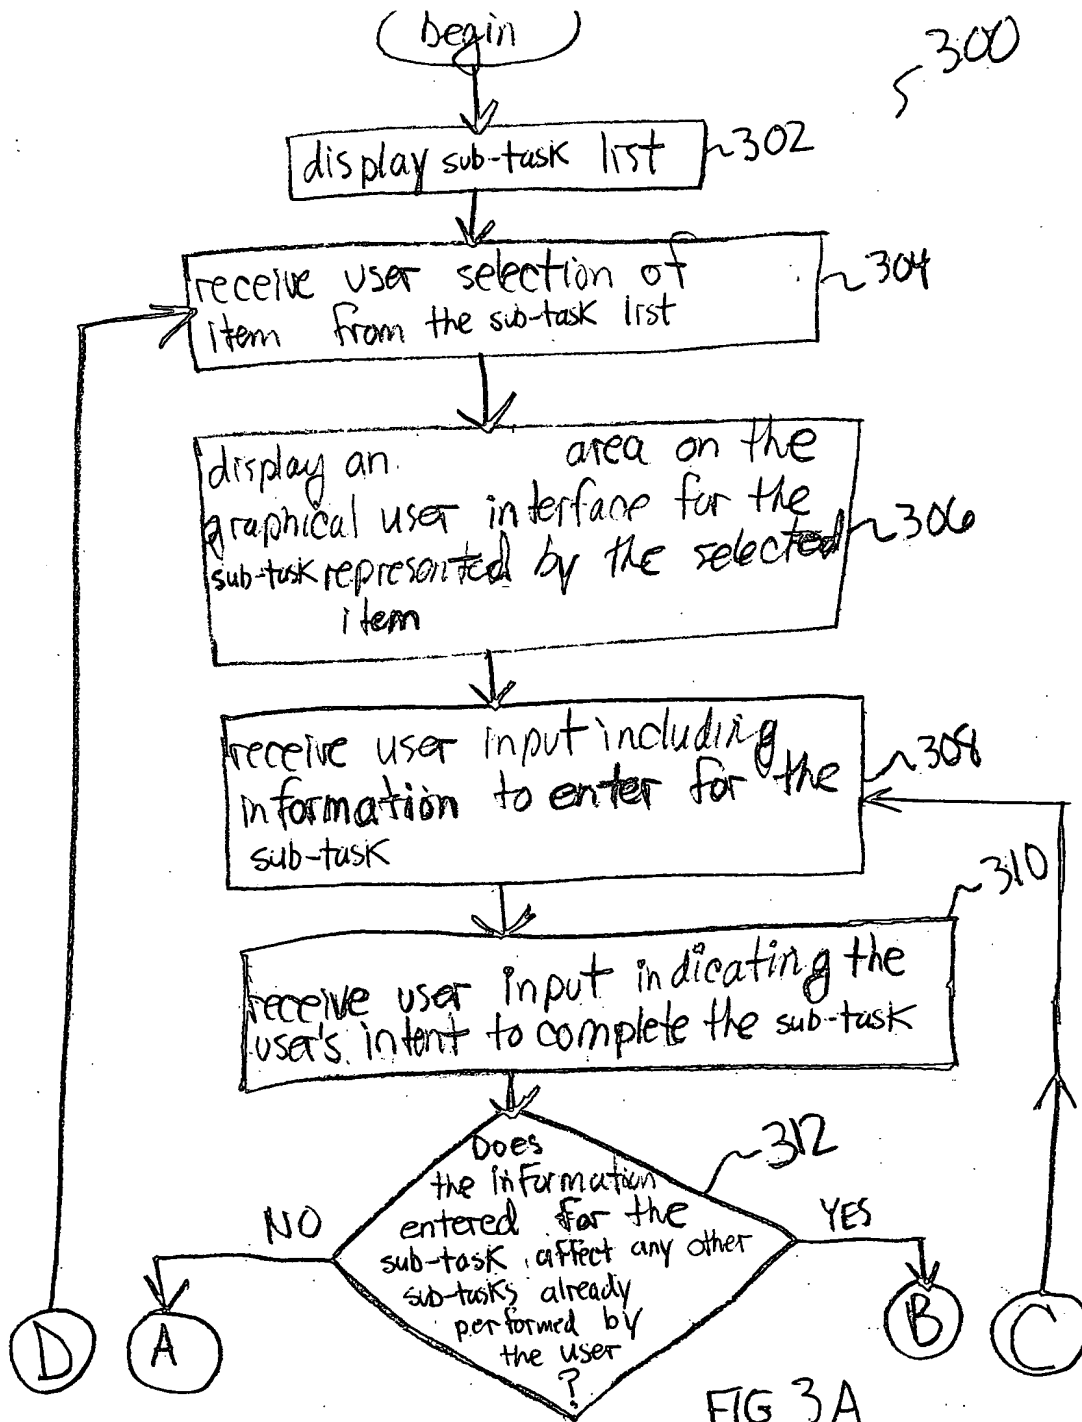 begin
300
display sub-task list
302
receive user selection of
item from the sub-task list
304
display an area on the
graphical user interface for the
sub-task represented by the selected
item
306
receive user input including
information to enter for the
sub-task
308
receive user input indicating the
user's intent to complete the sub-task
310
Does
the information
entered for the
sub-task affect any other
sub-tasks already
performed by
the user
?
312
NO
YES
D
A
B
C
FIG 3A